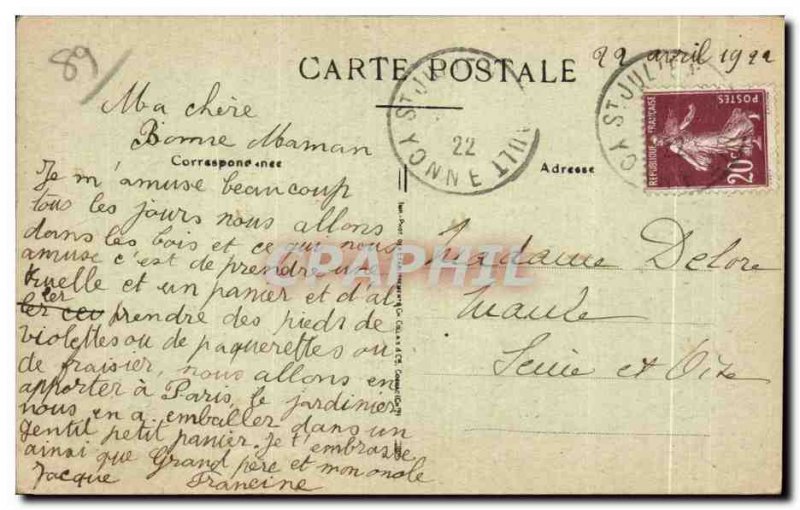 89
22 avril 1922
CARTE POSTALE
ST JULIEN
22
YONNE
ST JULIE
REPUBLIQUE FRANÇAISE
POSTES
20c
Correspondance
Adresse
Ma chère
Bonne Maman
Je m'amuse beaucoup
tous les jours nous allons
dans les bois et ce qui nous
amuse c'est de prendre une
truelle et un panier et d'al
ler prendre des pieds de
violettes ou de paquerettes ou
de fraisier, nous allons en
apporter à Paris, le jardinier
nous en a emballer dans un
gentil petit panier. Je t'embrasse
ainsi que Grand père et mon oncle
Jacque Francine
Madame Delore
Maule
Seine et Oise
CPAPHIL